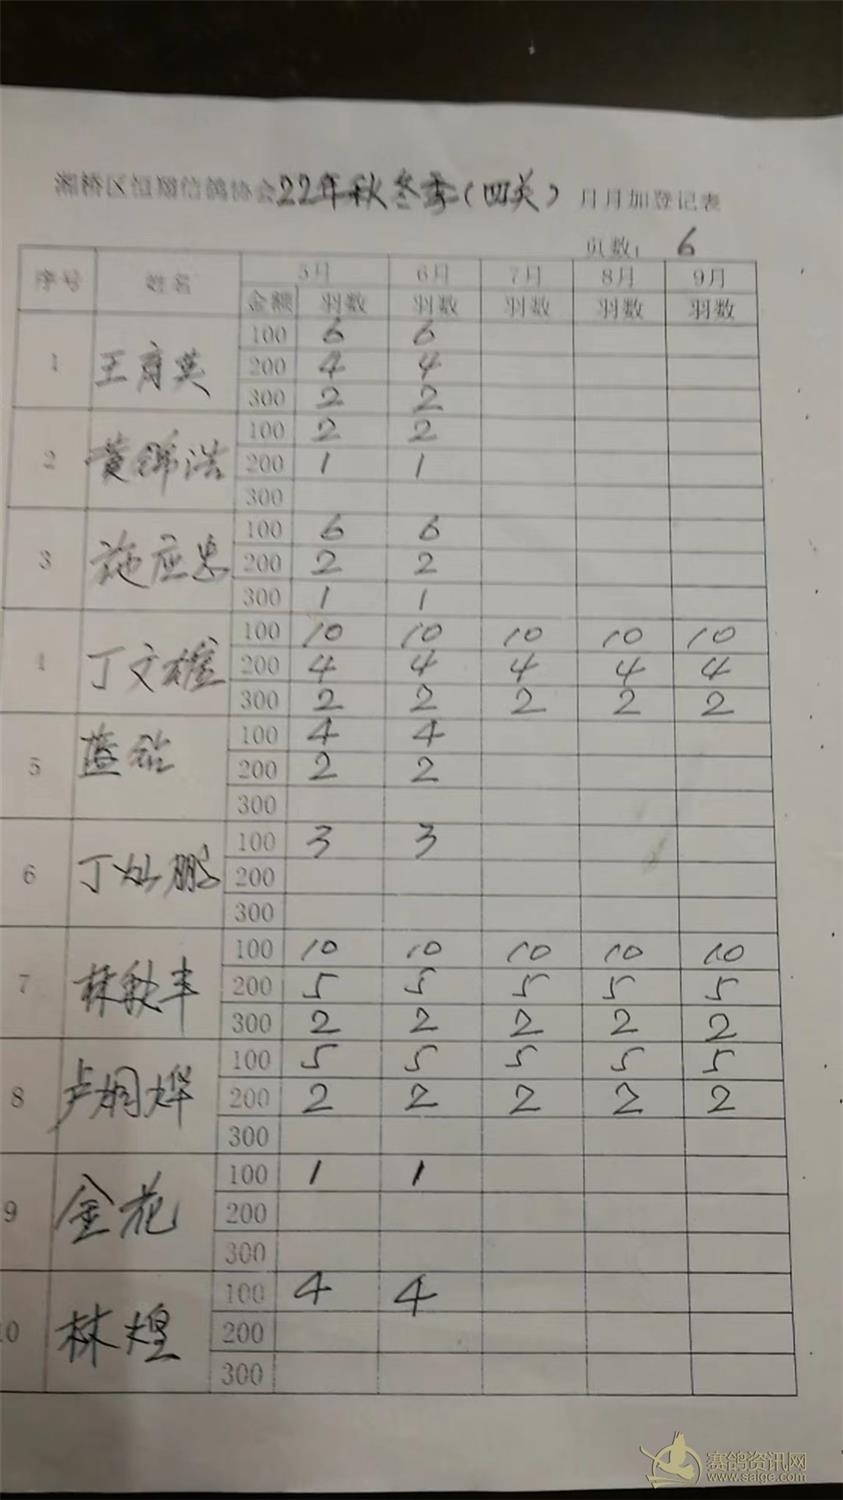 湘桥区恒翔信鸽协会22年秋冬季(四关)月月加登记表
页数: 6
序号 姓名 5月 6月 7月 8月 9月
金额 羽数 羽数 羽数 羽数 羽数
100 6 6
1 王育英 200 4 4
300 2 2
100 2 2
2 黄锦浩 200 1 1
300
100 6 6
3 施应忠 200 2 2
300 1 1
100 10 10 10 10 10
4 丁文雄 200 4 4 4 4 4
300 2 2 2 2 2
100 4 4
5 蓝钻 200 2 2
300
100 3 3
6 丁灿鹏 200
300
100 10 10 10 10 10
7 林秋丰 200 5 5 5 5 5
300 2 2 2 2 2
100 5 5 5 5 5
8 卢炯烨 200 2 2 2 2 2
300
100 1 1
9 金花 200
300
100 4 4
10 林煌 200
300
赛鸽资讯网
www.saige.com